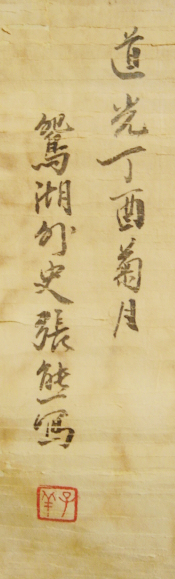 道光丁酉菊月
鴛湖外史張熊寫
子羊